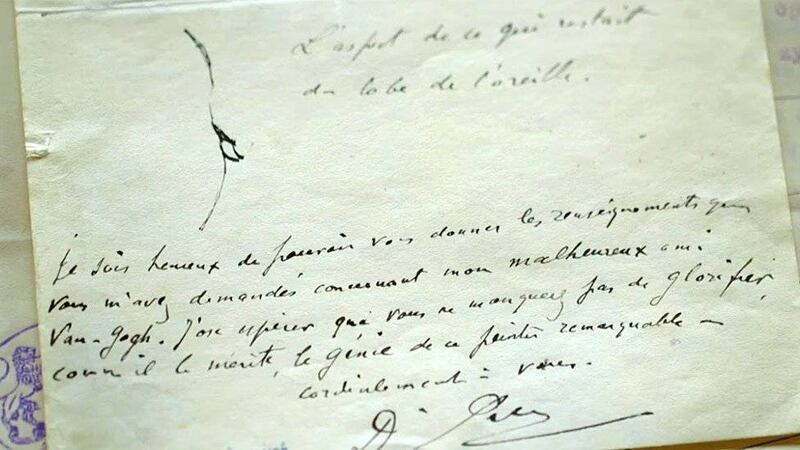 L'aspect de ce qui restait
du lobe de l'oreille.
Je suis heureux de pouvoir vous donner les renseignements que
vous m'avez demandés concernant mon malheureux ami
Van-Gogh. J'ose espérer que vous ne manquerez pas de glorifier,
comme il le mérite, le génie de ce peintre remarquable –
cordialement à vous.
Dr Rey